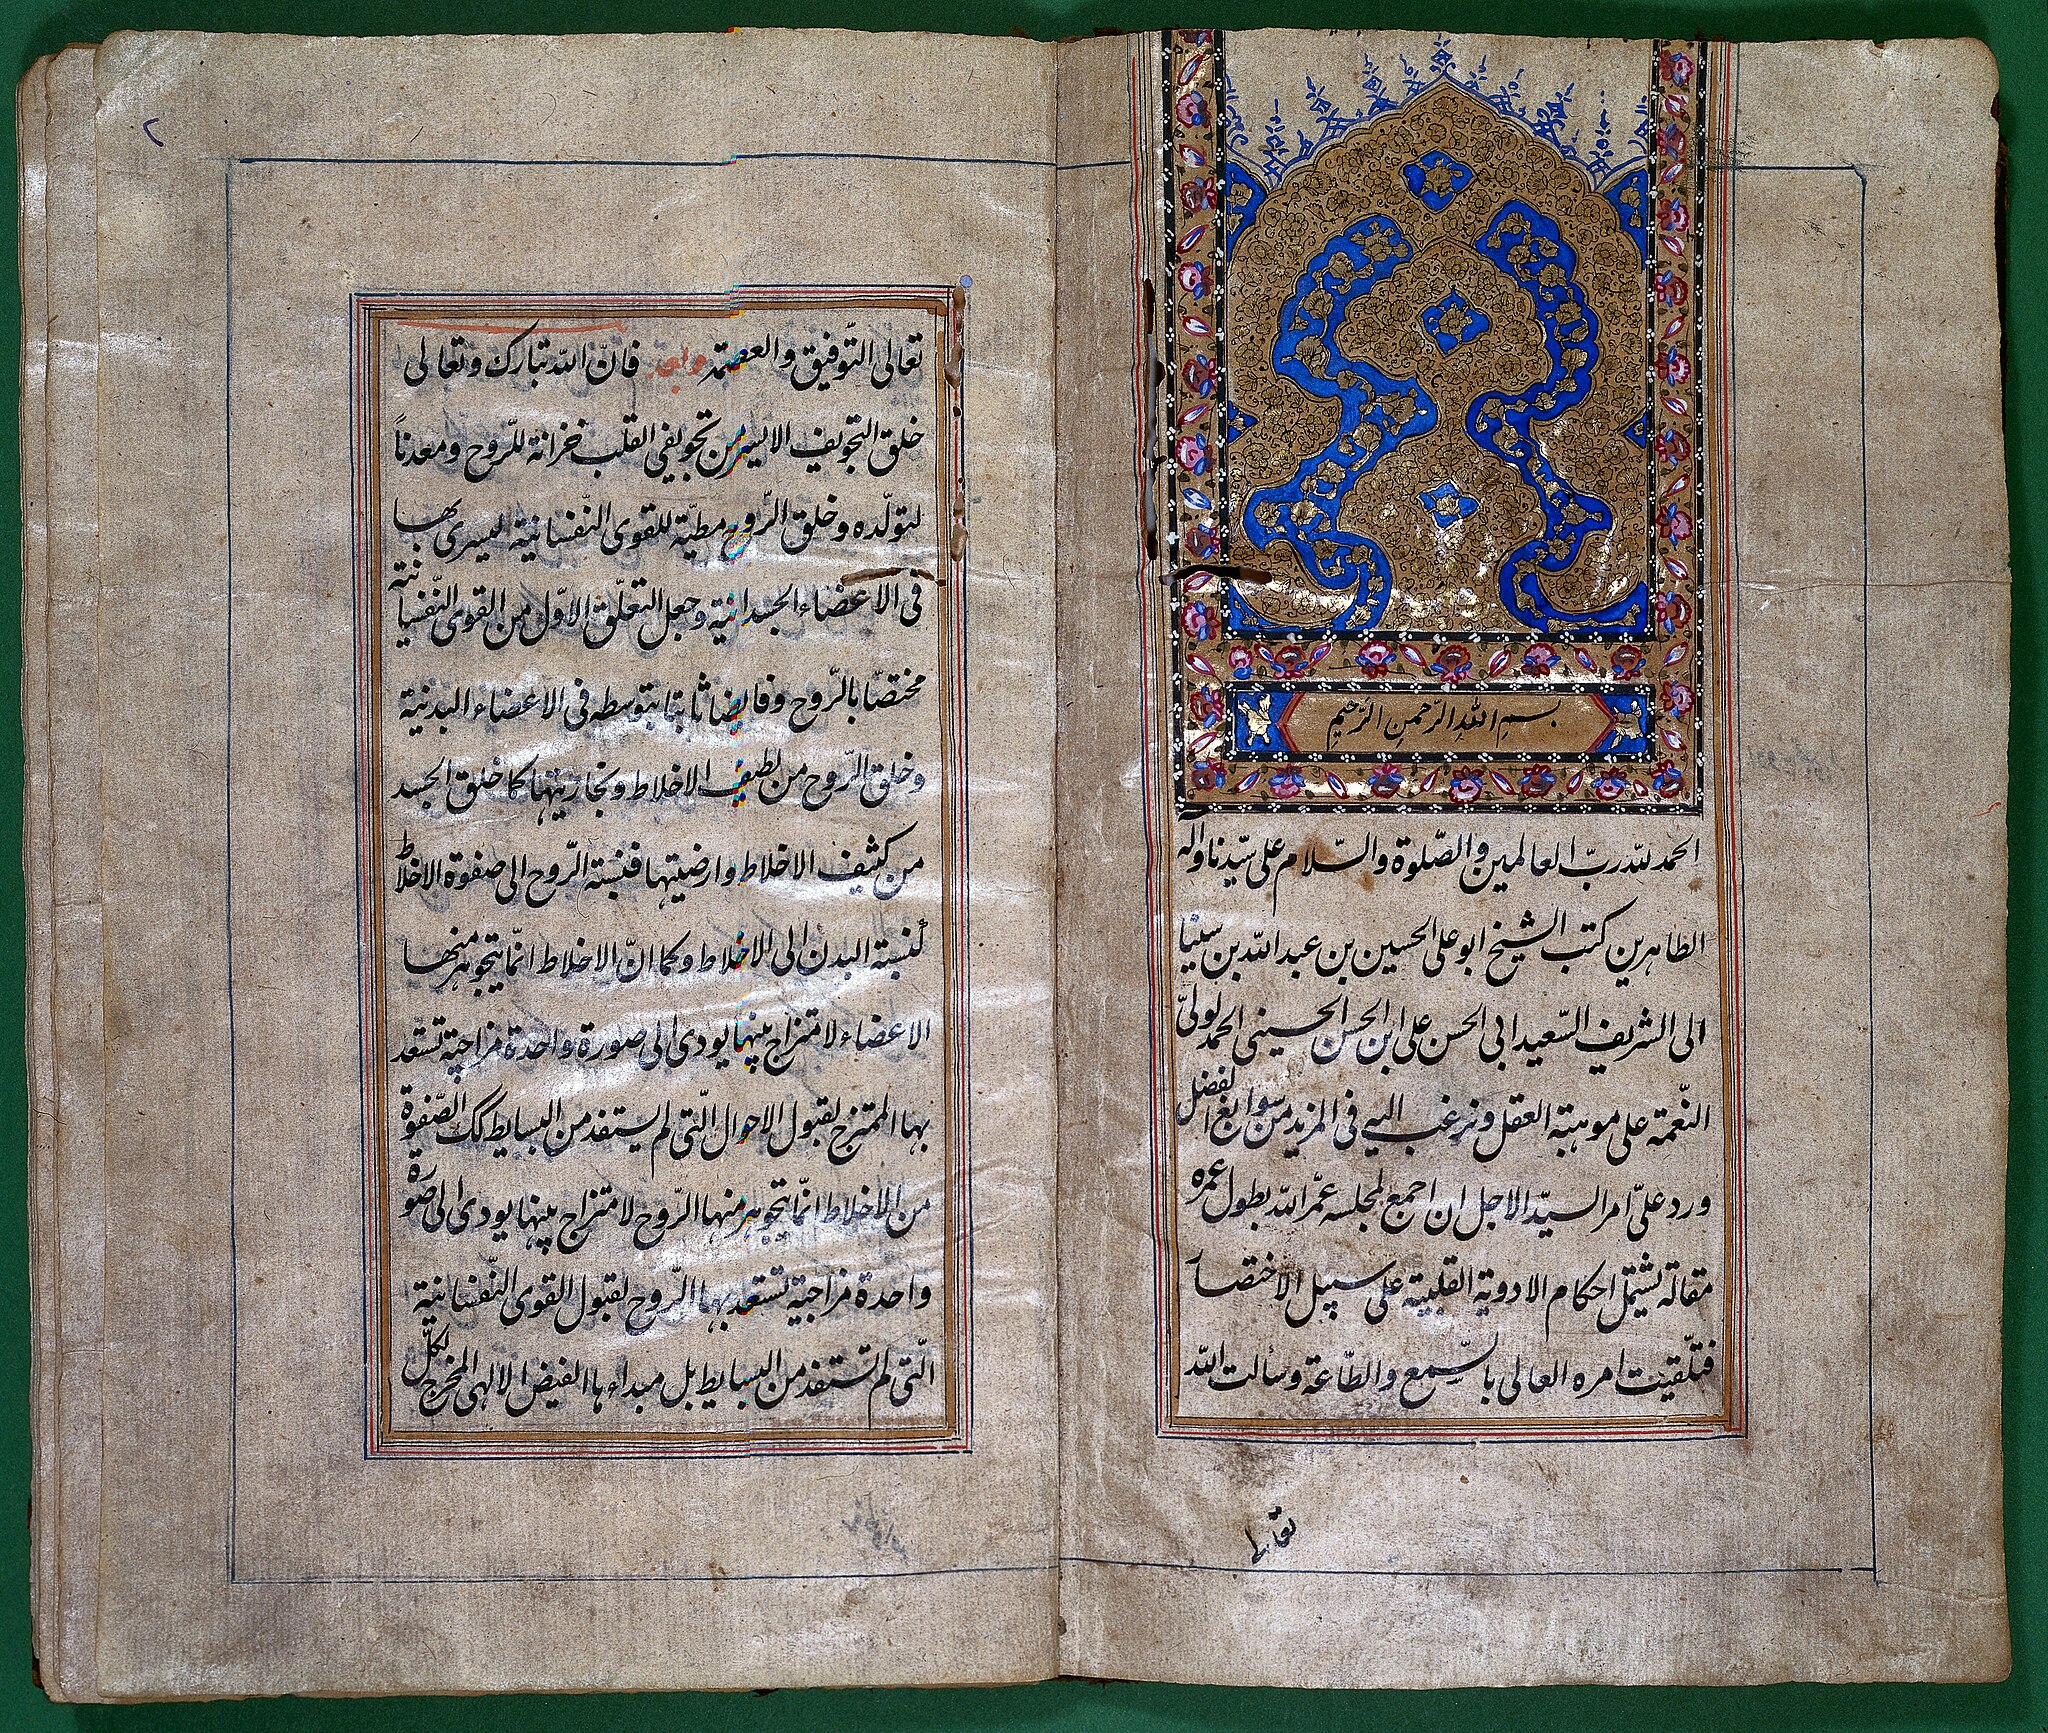 بسم الله الرّحمن الرّحيم
الحمد لله ربّ العالمين والصّلوة والسّلام على سيّدنا وآله
الطاهرين كتب الشيخ ابو على الحسين بن عبد الله بن سينا
الى الشريف السّعيد ابى الحسن على ابن الحسن الحسينى الحمد لولىّ
النّعمة على موهبة العقل ونرغب اليه فى المزيد من سوابغ الفضل
ورد علىّ امر السيّد الاجل ان اجمع لمجلسه عمّر الله بطول عمره
مقالة تشتمل احكام الادوية القلبية على سبيل الاختصار
فتلقّيت امره العالى بالسّمع والطّاعة وسألت الله
تعالى
٢
تعالى التّوفيق والعصمة وبعد فانّ الله تبارك وتعالى
خلق التجويف الايسر من تجويفى القلب خزانة للرّوح ومعدناً
لتولّده وخلق الرّوح مطيّة للقوى النّفسانية ليسرى بها
فى الاعضاء الجسدانية وجعل التعلّق الاوّل من القوى النّفسانية
مختصّا بالرّوح وفايضا ثانيا بتوسطه فى الاعضاء البدنية
وخلق الرّوح من لطيف الاخلاط وبخاريتها كما خلق الجسد
من كثيف الاخلاط وارضيتها فنسبة الرّوح الى صفوة الاخلاط
كنسبة البدن الى الاخلاط وكما انّ الاخلاط انّما يتجوهر منها
الاعضاء لامتزاج بينها يودى الى صورة واحدة مزاجية تستعد
بها الممتزج لقبول الاحوال الّتى لم يستفد من البسايط كك الصّفوة
من الاخلاط انّما يتجوهر منها الرّوح لامتزاج بينها يودى الى صورة
واحدة مزاجية تستعد بها الرّوح لقبول القوى النّفسانية
الّتى لم تستفد من البسايط بل مبداءها الفيض الالهى المخرج لكلّ